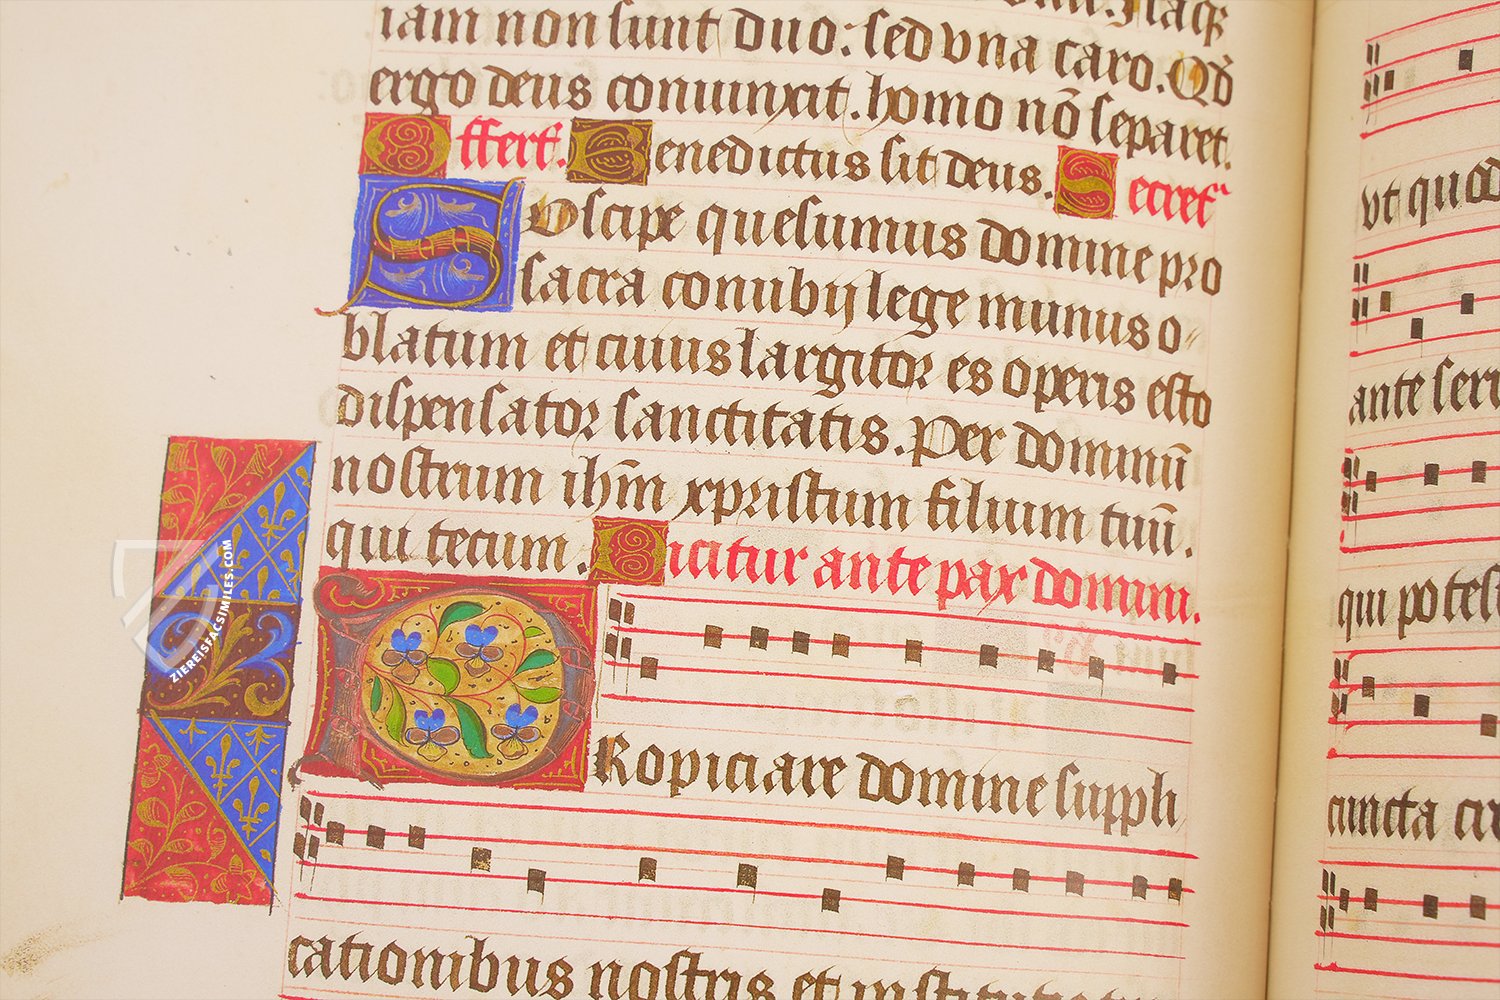 Itaqꝫ
iam non sunt duo: sed vna caro. Qđ
ergo deus coniunxit. homo nō separet.
Offert̄. Benedictus sit deus. Secret̄
Suscipe quesumus domine pro
sacra conubij lege munus o-
blatum et cuius largitor es operis esto
dispensator sanctitatis. Per dominū
nostrum ihm̄ xpristum filium tuū.
qui tecum. Dicitur ante pax domini.
PRopiciare domine suppli
cationibus nostris et institutis
vt quod
ante seru
qui potes
cuncta cr
ZIEREISFACSIMILES.COM